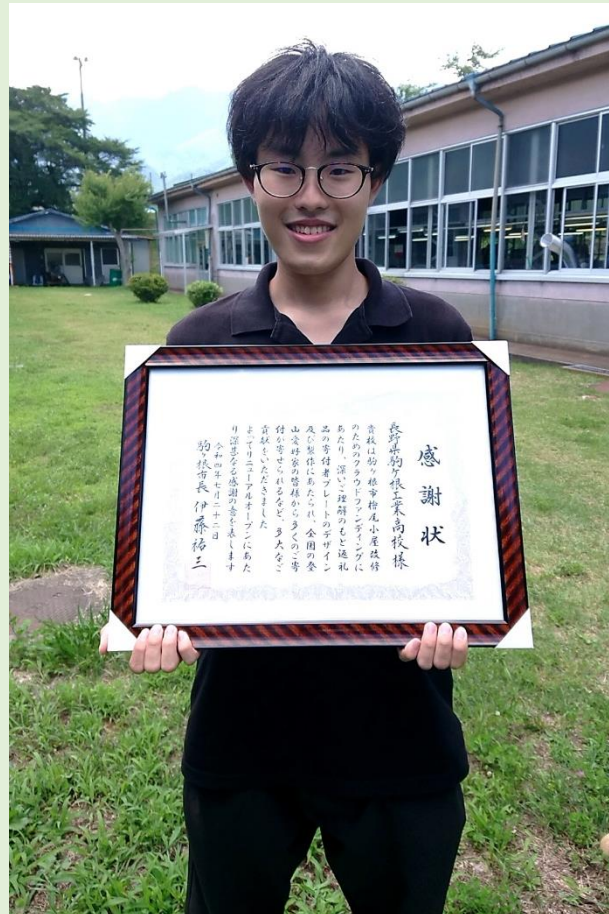 感謝状
長野県駒ヶ根工業高校様
貴校は駒ヶ根市檜尾小屋改修
のためのクラウドファンディングに
あたり、深いご理解のもと返礼
品の寄付者プレートのデザイン
及び製作にあたられ、全国の登
山愛好家の皆様から多くのご寄
付が寄せられるなど、多大なご
貢献をいただきました
よってリニューアルオープンにあた
り深甚なる感謝の意を表します
令和四年七月二十二日
駒ヶ根市長 伊藤祐三